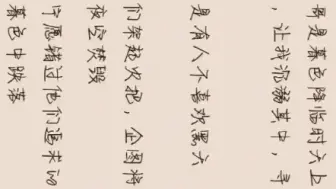 是暮色降临时天上
，让我沉溺其中，寻
是有人不喜欢黑
们架起火把，企图将
夜空焚毁
宁愿错过他们追求的
暮色中跌落